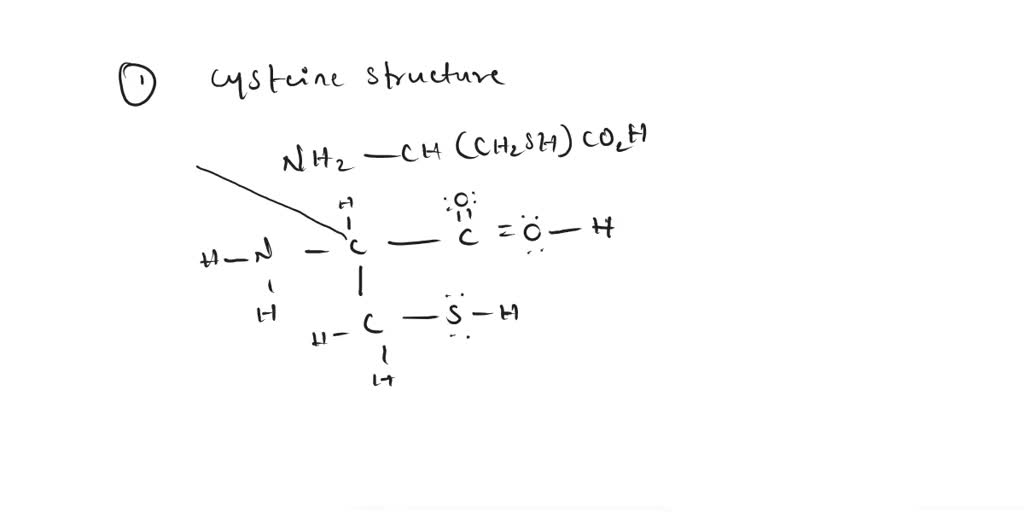 ① cysteine structure
NH₂ — CH (CH₂SH) CO₂H
H :O:
H – N – C — C = O – H
H H – C — S – H
H